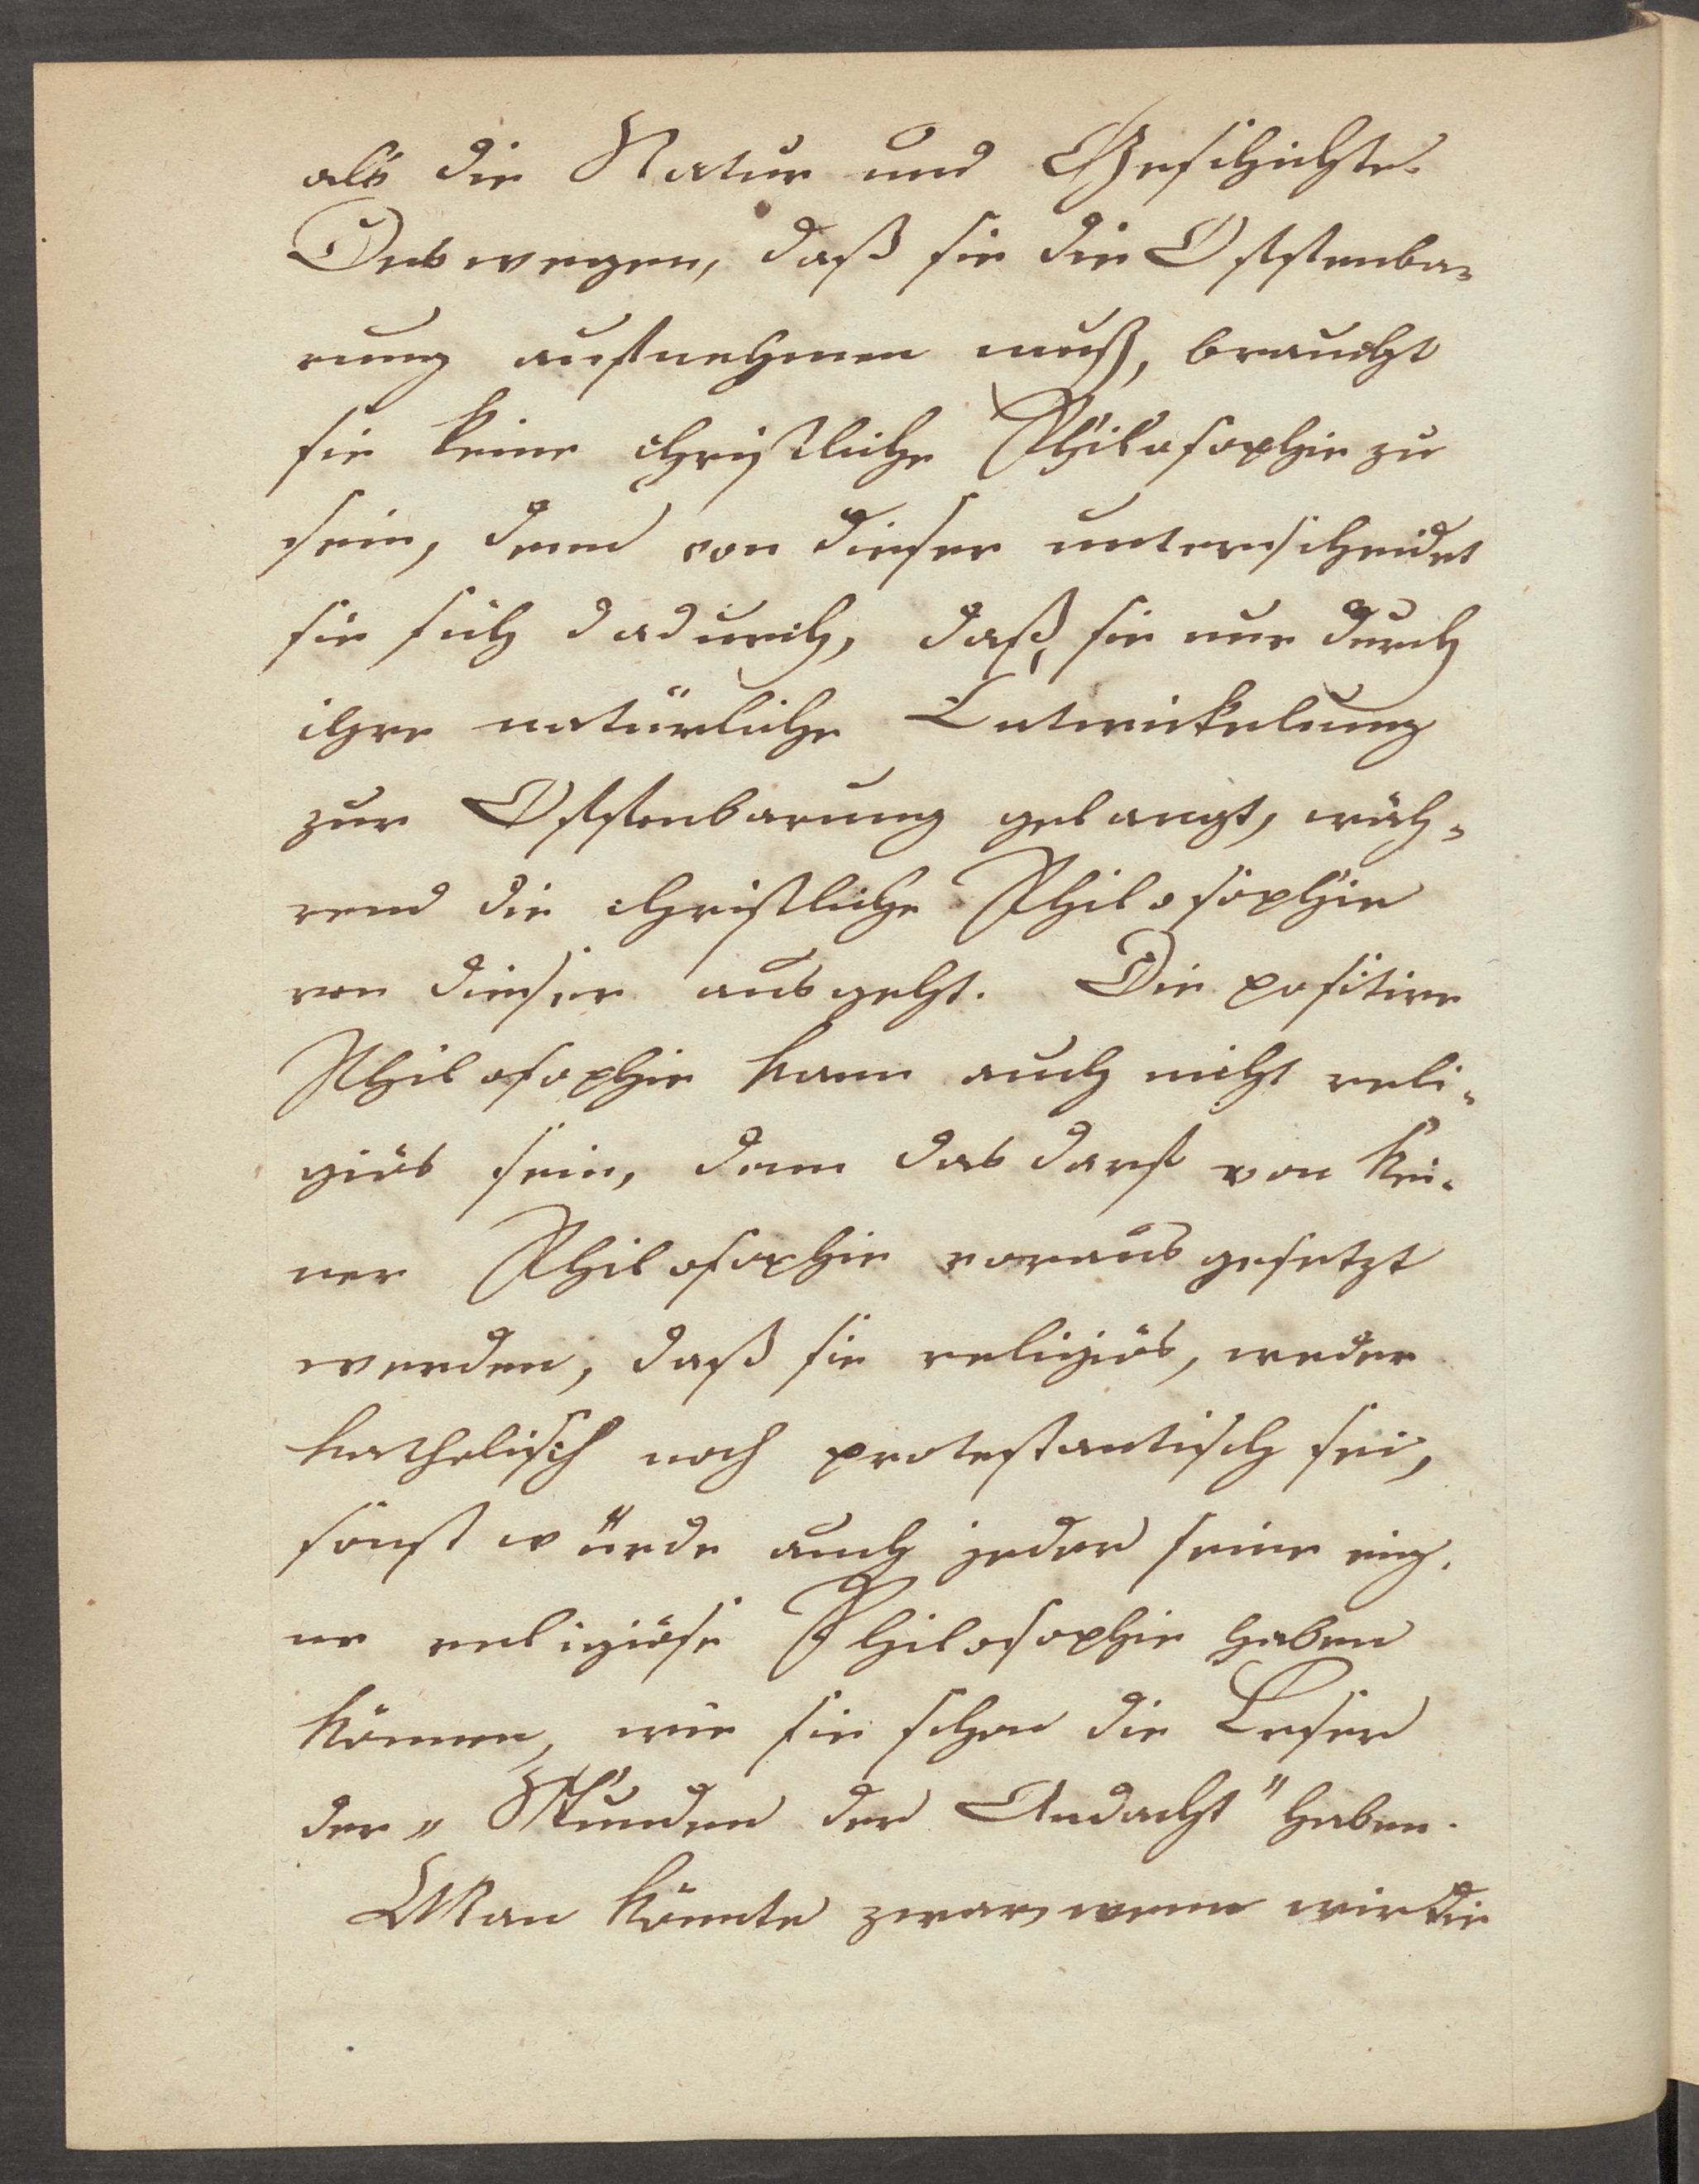 als die Natur und Geschichte.
Deswegen, daß sie die Offenba-
rung aufnehmen muß, braucht
sie keine christliche Philosophie zu
sein, denn von dieser unterscheidet
sie sich dadurch, daß sie nur durch
ihre natürliche Entwickelung
zur Offenbarung gelangt, wäh-
rend die christliche Philosophie
von dieser ausgeht. Die positive
Philosophie kann auch nicht reli-
giös sein, denn das darf von kei-
ner Philosophie vorausgesetzt
werden, daß sie religiös, weder
katholisch noch protestantisch sei,
sonst würde auch jeder seine eig-
ne religiöse Philosophie haben
können, wie sie schon die Leser
der „Stunden der Andacht" haben.
Man könnte zwar, wenn wir die